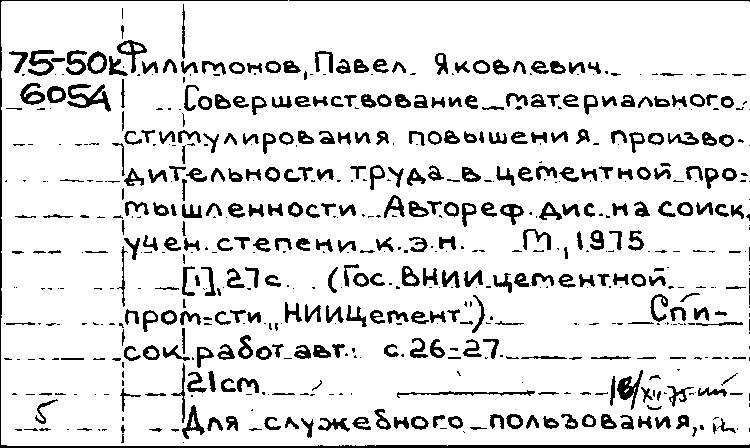 75-50к Филимонов, Павел Яковлевич.
6054 Совершенствование материального
стимулирования повышения произво-
дительности труда в цементной про-
мышленности. Автореф. дис. на соиск.
учен. степени к.э.н. М., 1975
[1], 27с. (Гос. ВНИИ цементной
пром-сти „НИИЦемент"). Спи-
сок работ авт.: с. 26-27.
21cm.
18/XII-75
5 Для служебного пользования.